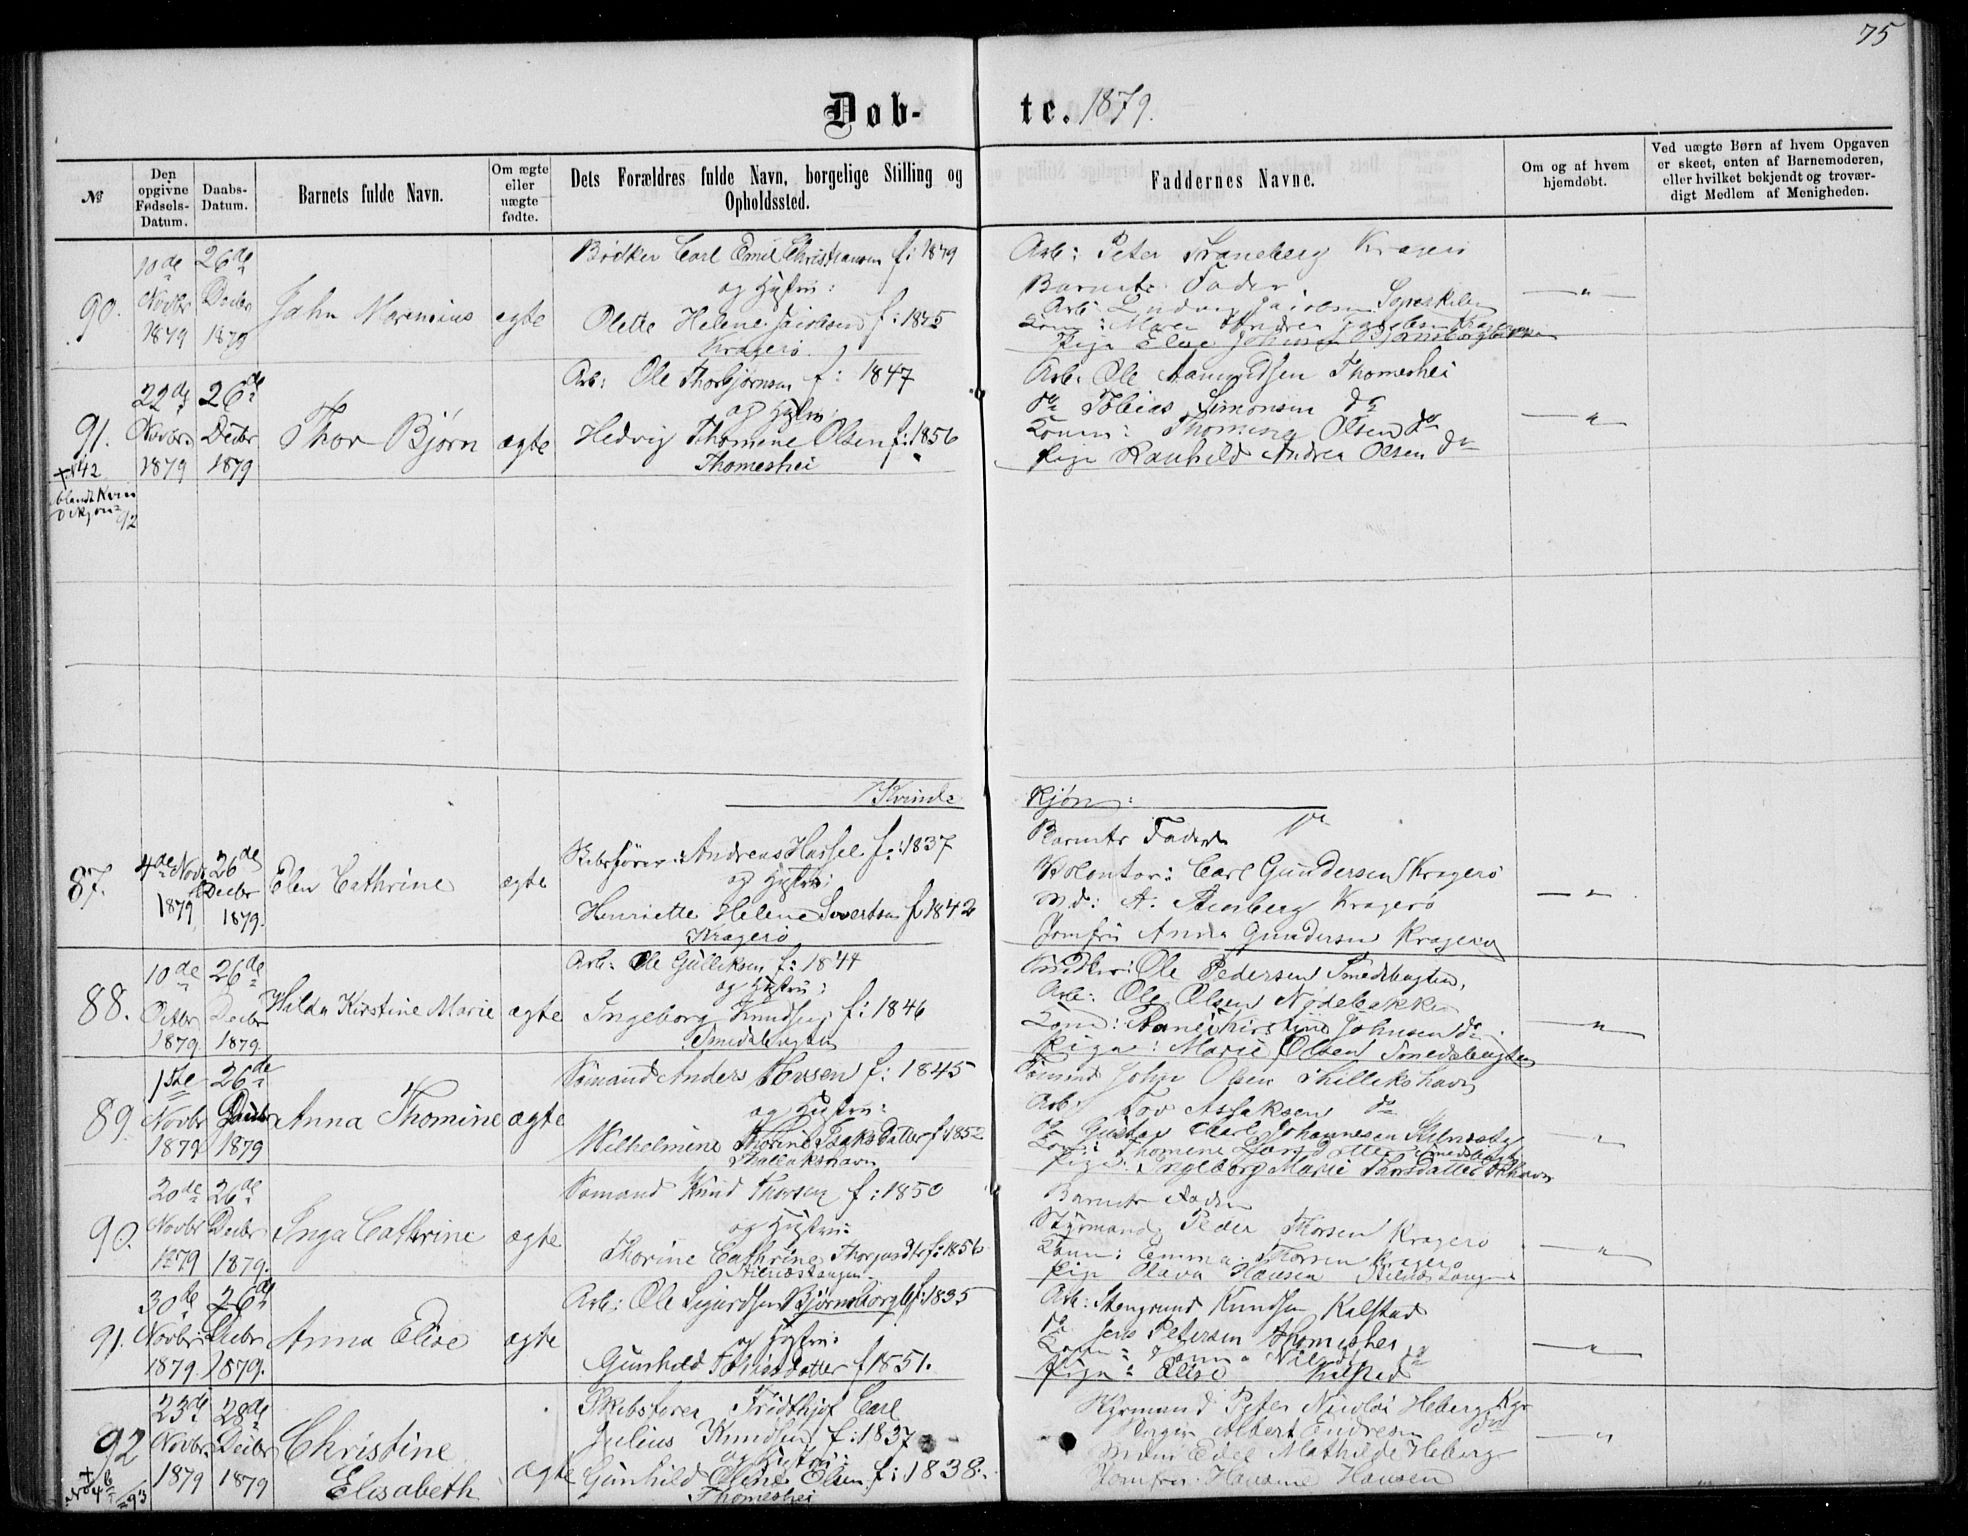 75
Døb- te. 1879.
№
Den opgivne Fødsels-Datum.
Daabs-Datum.
Barnets fulde Navn.
Om ægte eller uægte fødte.
Dets Forældres fulde Navn, borgelige Stilling og Opholdssted.
Faddernes Navne.
Om og af hvem hjemdøbt.
Ved uægte Børn af hvem Opgaven er skeet, enten af Barnemoderen, eller hvilket bekjendt og troværdigt Medlem af Menigheden.
90.
10de Novbr 1879
26de Decbr 1879
John Marensius
ægte
Bødker Carl Emil Christiansen f: 1849
og Hustru:
Olette Helene Jacobsen f: 1845
Kragerø.
Arb: Peter Traneberg Kragerø
Barnets Fader
Arb: Jacobsen
Kone: Maren Andrea Jacobsen
Pige Johnsen Bjørnsborgbakken
— " —
91.
22de Novbr 1879
26de Decbr 1879
Thor Bjørn
ægte
Arb: Ole Thorbjørnsen f: 1847
og Hustru:
Hedvig Thomine Olsen f: 1856
Thomeshei
Arb. Ole Aamundsen Thomeshei
do Tobias Simonsen do
Kone: Thomine Olsen do
Pige Ranhild Andrea Olsen do
— " —
+ 142
blandt Kvin
92
Kvinde-
Kjøn:
87.
4de Novbr 1879
26de Decbr 1879.
Elen Cathrine
ægte
Skibsfører: Andreas Hassel f: 1837
og Hustru:
Henriette Helene Sivertsen f 1842
Kragerø
Barnets Fader
Volentør: Carl Gundersen Kragerø
Md: A. Kragerø
Jomfru Andrea Gundersen Kragerø
— " —
88.
10de Octbr 1879
26de Decbr 1879.
Hilda Kirstine Marie
ægte
Arb: Ole Gulliksen f: 1844
og Hustru:
Ingeborg Knudsen f: 1846
Smedsbugten
Ole Pedersen Smedsbugten,
Arb: Ole Olsen Nødebakken
Kone: Kirstine Johnsen do.
Pige: Marie Olsen Smedsbugten
— " —
89.
1ste Novbr 1879
26de Decbr 1879
Anna Thomine
ægte
Sømand Anders Torsen f: 1845
og Hustru:
Wilhelmine Thorine Isaksdatter f: 1852
Sømand John Olsen
Arb: Tov Assaksen do
do Gustav Carl Johannesen
Kone: Thomine Larsdatter Smedsbugten
Pige: Ingeborg Marie Thorsdatter
"
90.
20de Novbr 1879
26de Decbr 1879.
Inga Cathrine
ægte
Sømand Knud Thorsen f: 1850
og Hustru:
Thorine Cathrine f: 1856
Stilnæstangen
Barnets Fader
Styrmand Peder Thorsen Kragerø
Kone: Emma Thorsen Kragerø
Pige Olava Hansen Stilnæstangen
— " —
91.
30de Novbr 1879.
26de Decbr 1879.
Anna Elise
ægte
Arb: Ole Sigurdsen Bjørnsborgb f: 1835
og Hustru:
Gunhild Tobiasdatter f 1851.
Arb: Stengrund Knudsen Kalstad
do Jens Petersen Thomeshei
Kone: do
Pige: Elise Kalstad
— " —
92
23de Novbr. 1879
28de Decbr 1879
Christine
Elisabeth
ægte
Skibsfører Fridthjof Carl
Julius Knudsen f: 1837
og Hustru:
Gunhild Oline Olsen f: 1838.
Thomeshei
Styrmand Peter Nicolai Heberg
Albert Endresen do
Edel Mathilde Heberg
Jomfru: Hansine Hansen
— " —